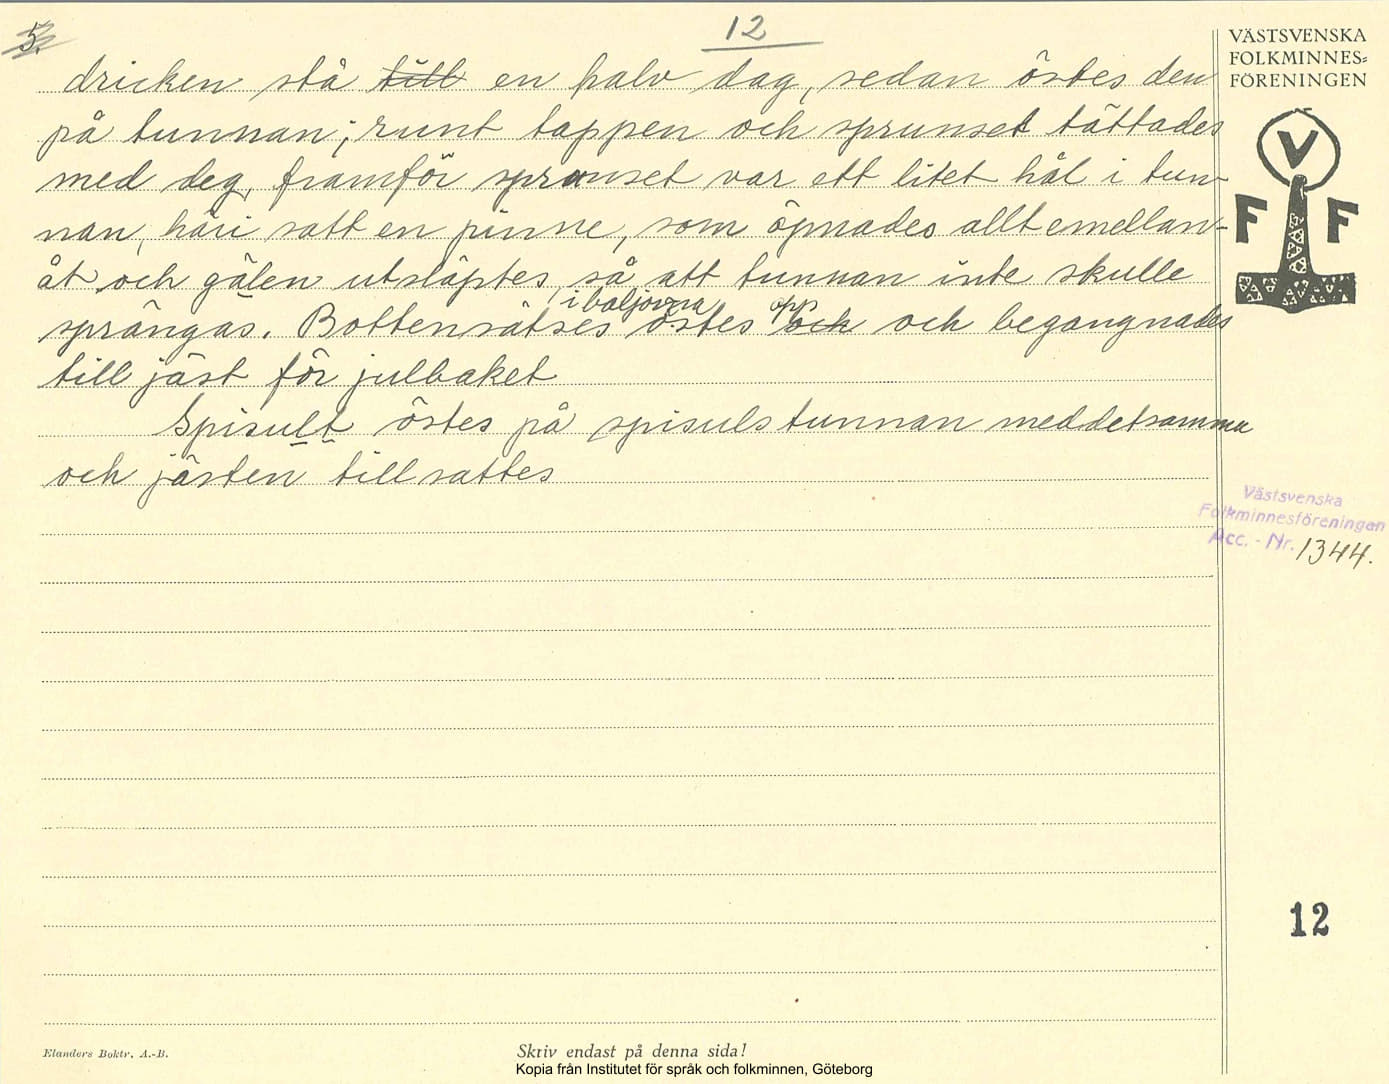 5.
12
dricken stå till en halv dag, sedan östes den
på tunnan; runt tappen och sprunset tättades
med deg, framför sprunset var ett litet hål i tun-
nan, häri satt en pinne, som öpnades allt emellan-
åt och gälen utsläptes, så att tunnan inte skulle
sprängas. Bottensätses i baljorna östes opp och och begangnades
till jäst för julbaket
Spisult östes på spisulstunnan meddetsamma
och jästen tillsattes
VÄSTSVENSKA
FOLKMINNES=
FÖRENINGEN
V
F F
Västsvenska
Folkminnesföreningen
Acc. - Nr. 1344.
12
Elanders Boktr. A.-B.
Skriv endast på denna sida!
Kopia från Institutet för språk och folkminnen, Göteborg